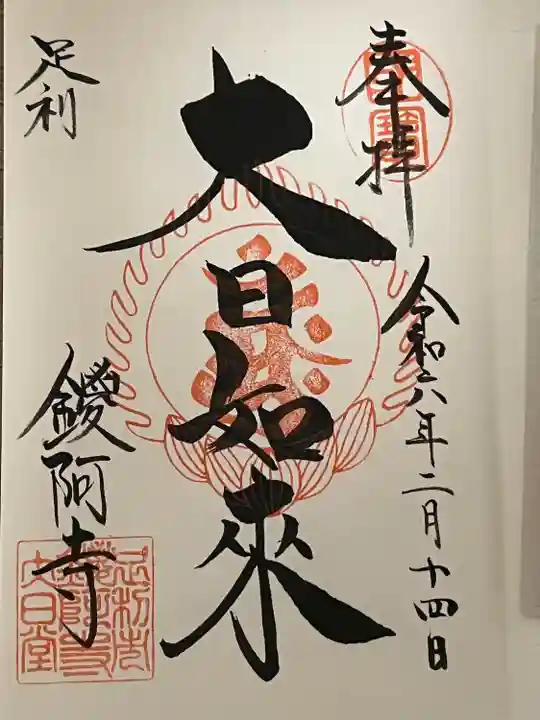 奉拝
令和六年二月十四日
大日如来
足利
鑁阿寺
国宝
足利市
鑁阿寺
大日堂